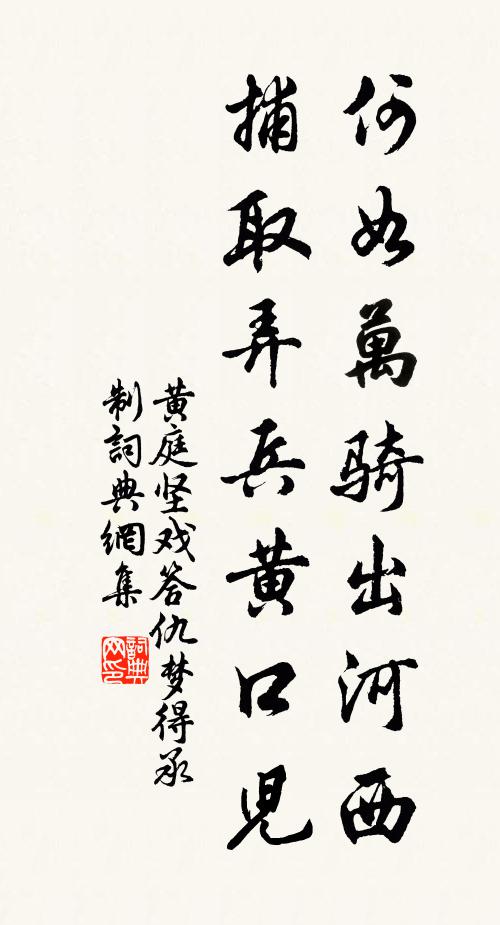 何如萬騎出河西
捕取弄兵黄口児
黄庭坚戏答仇梦得承
制詞典網集
詞典網印